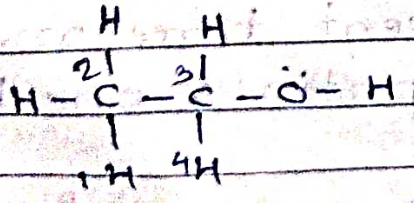 H H
2 3
H - C - C - Ö - H
1 H 4H